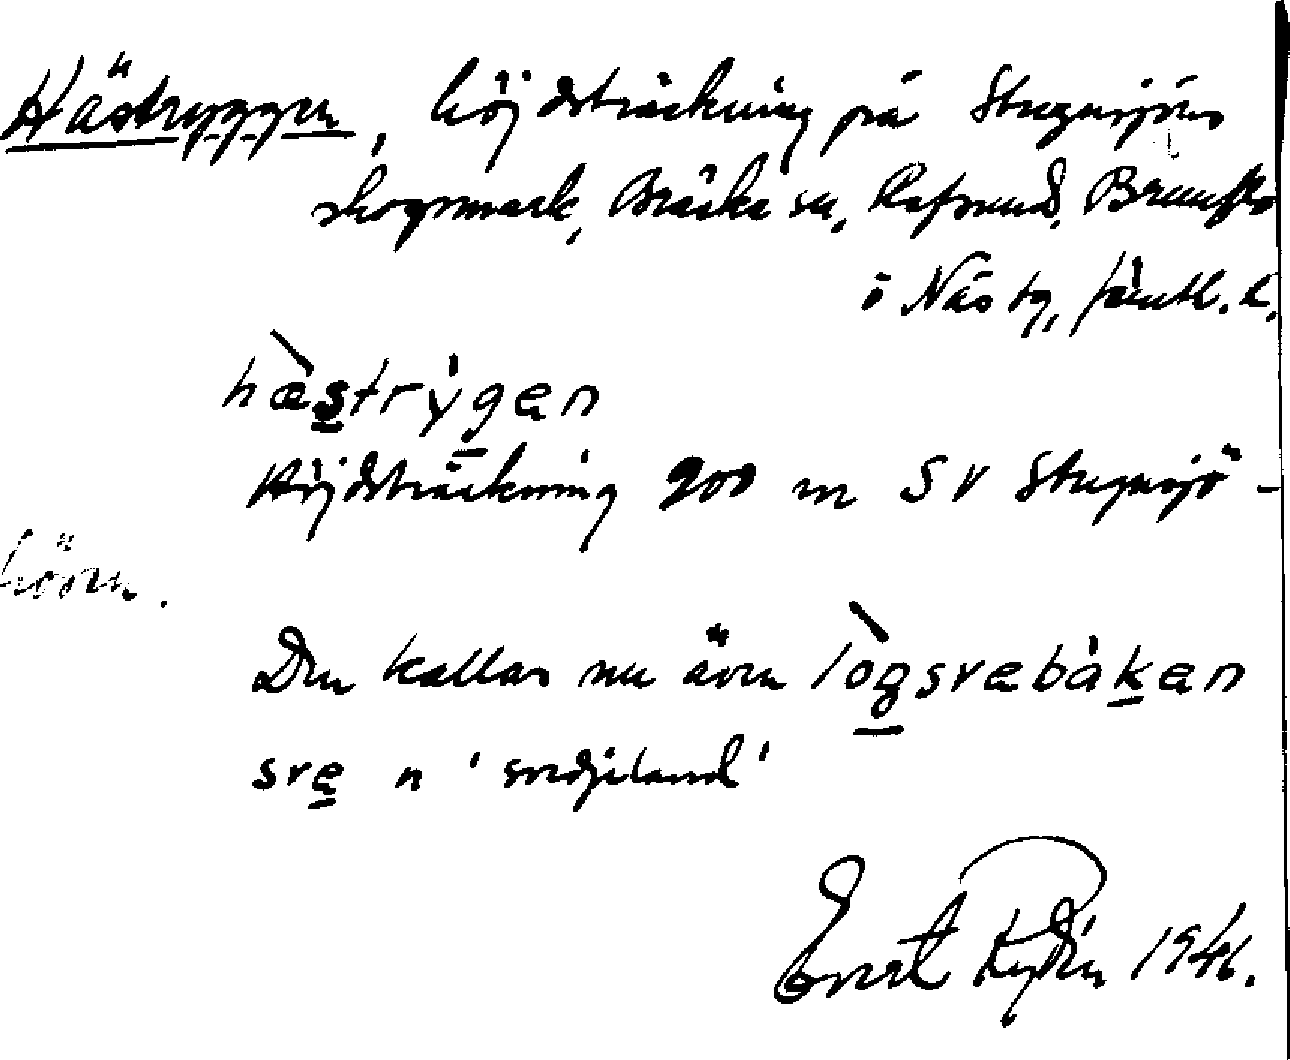 Hästryggen, höjdsträckning på Stugusjöns
skogsmark, Bräcke sn, Refsund, Brunflo
o Näs tg, Jämtl. l.
hæ̀strỳgen
Höjdsträckning 900 m SV Stugusjö-
höven.
Den kallas nu även lògsvebàken
sve n 'svedjeland'
Ernst Rydén 1946.